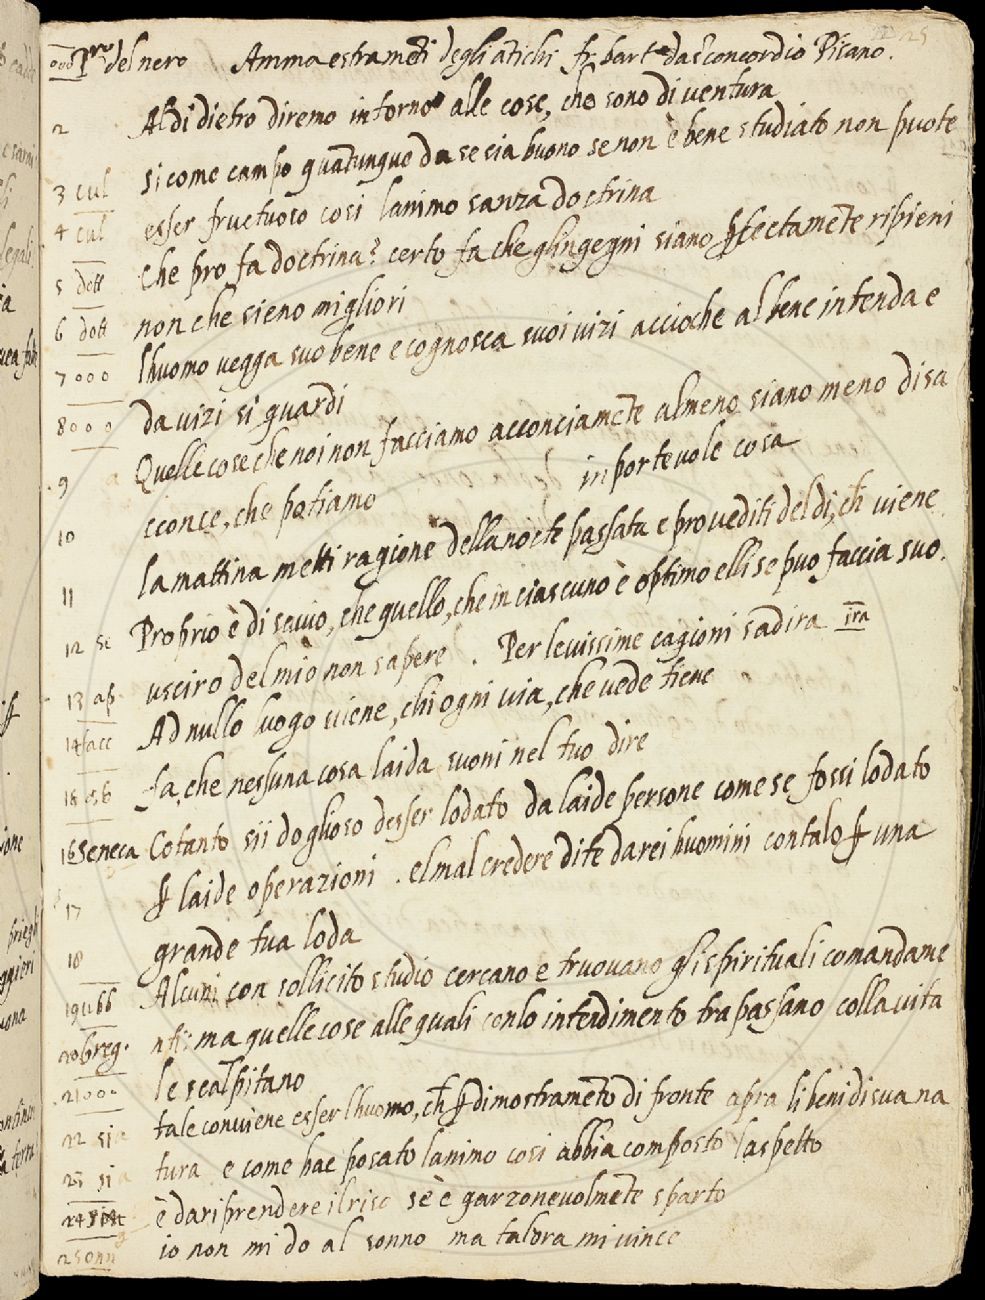 25
000 Pro del nero Ammaestrameti degli atichi fr. bart. da sco concordio Pisano.
2 Al di dietro diremo intorno alle cose, che sono di ventura
si come campo quatunque da se sia buono se non è bene studiato non puote
3 cul esser fructuoso cosi lanimo sanza doctrina
4 cul che pro fa doctrina? certo fa che glingegni siano pfectamete ripieni
5 dott non che sieno migliori
6 dott lhuomo vegga suo bene e cognosca suoi vizi accioche al bene intenda e
7 000 da vizi si guardi
8 000 Quelle cose che noi non facciamo acconciamete almeno siano meno disa
9 cconce, che potiamo inportevole cosa
10 la mattina metti ragione della nocte passata e provediti del di, ch viene
11 Proprio è di savio, che quello, che in ciascuno è optimo elli se puo faccia suo.
12 se usciro del mio non sapere . Per levissime cagioni sadira ira
13 ap Ad nullo luogo viene, chi ogni via, che vede tiene
14 facc fa, che nessuna cosa laida suoni nel tuo dire
15 Cotanto sii doglioso desser lodato da laide persone come se fossi lodato
16 Seneca p laide operazioni . el mal credere di te da rei huomini contalo p una
17 grande tua loda
18 Alcuni con sollicito studio cercano e truovano gli spirituali comandame
19 nti; ma quelle cose alle quali conlo intedimento trapassano colla vita
20 greg. le scalpitano
21 000 tale conviene esser lhuomo, ch p dimostrameto di fronte apra li beni di sua na
22 tura e come hae posato lanimo cosi abbia composto laspetto
23 è da riprendere il riso se è garzonevolmete sparto
24 io non mi do al sonno ma talora mi vince
25